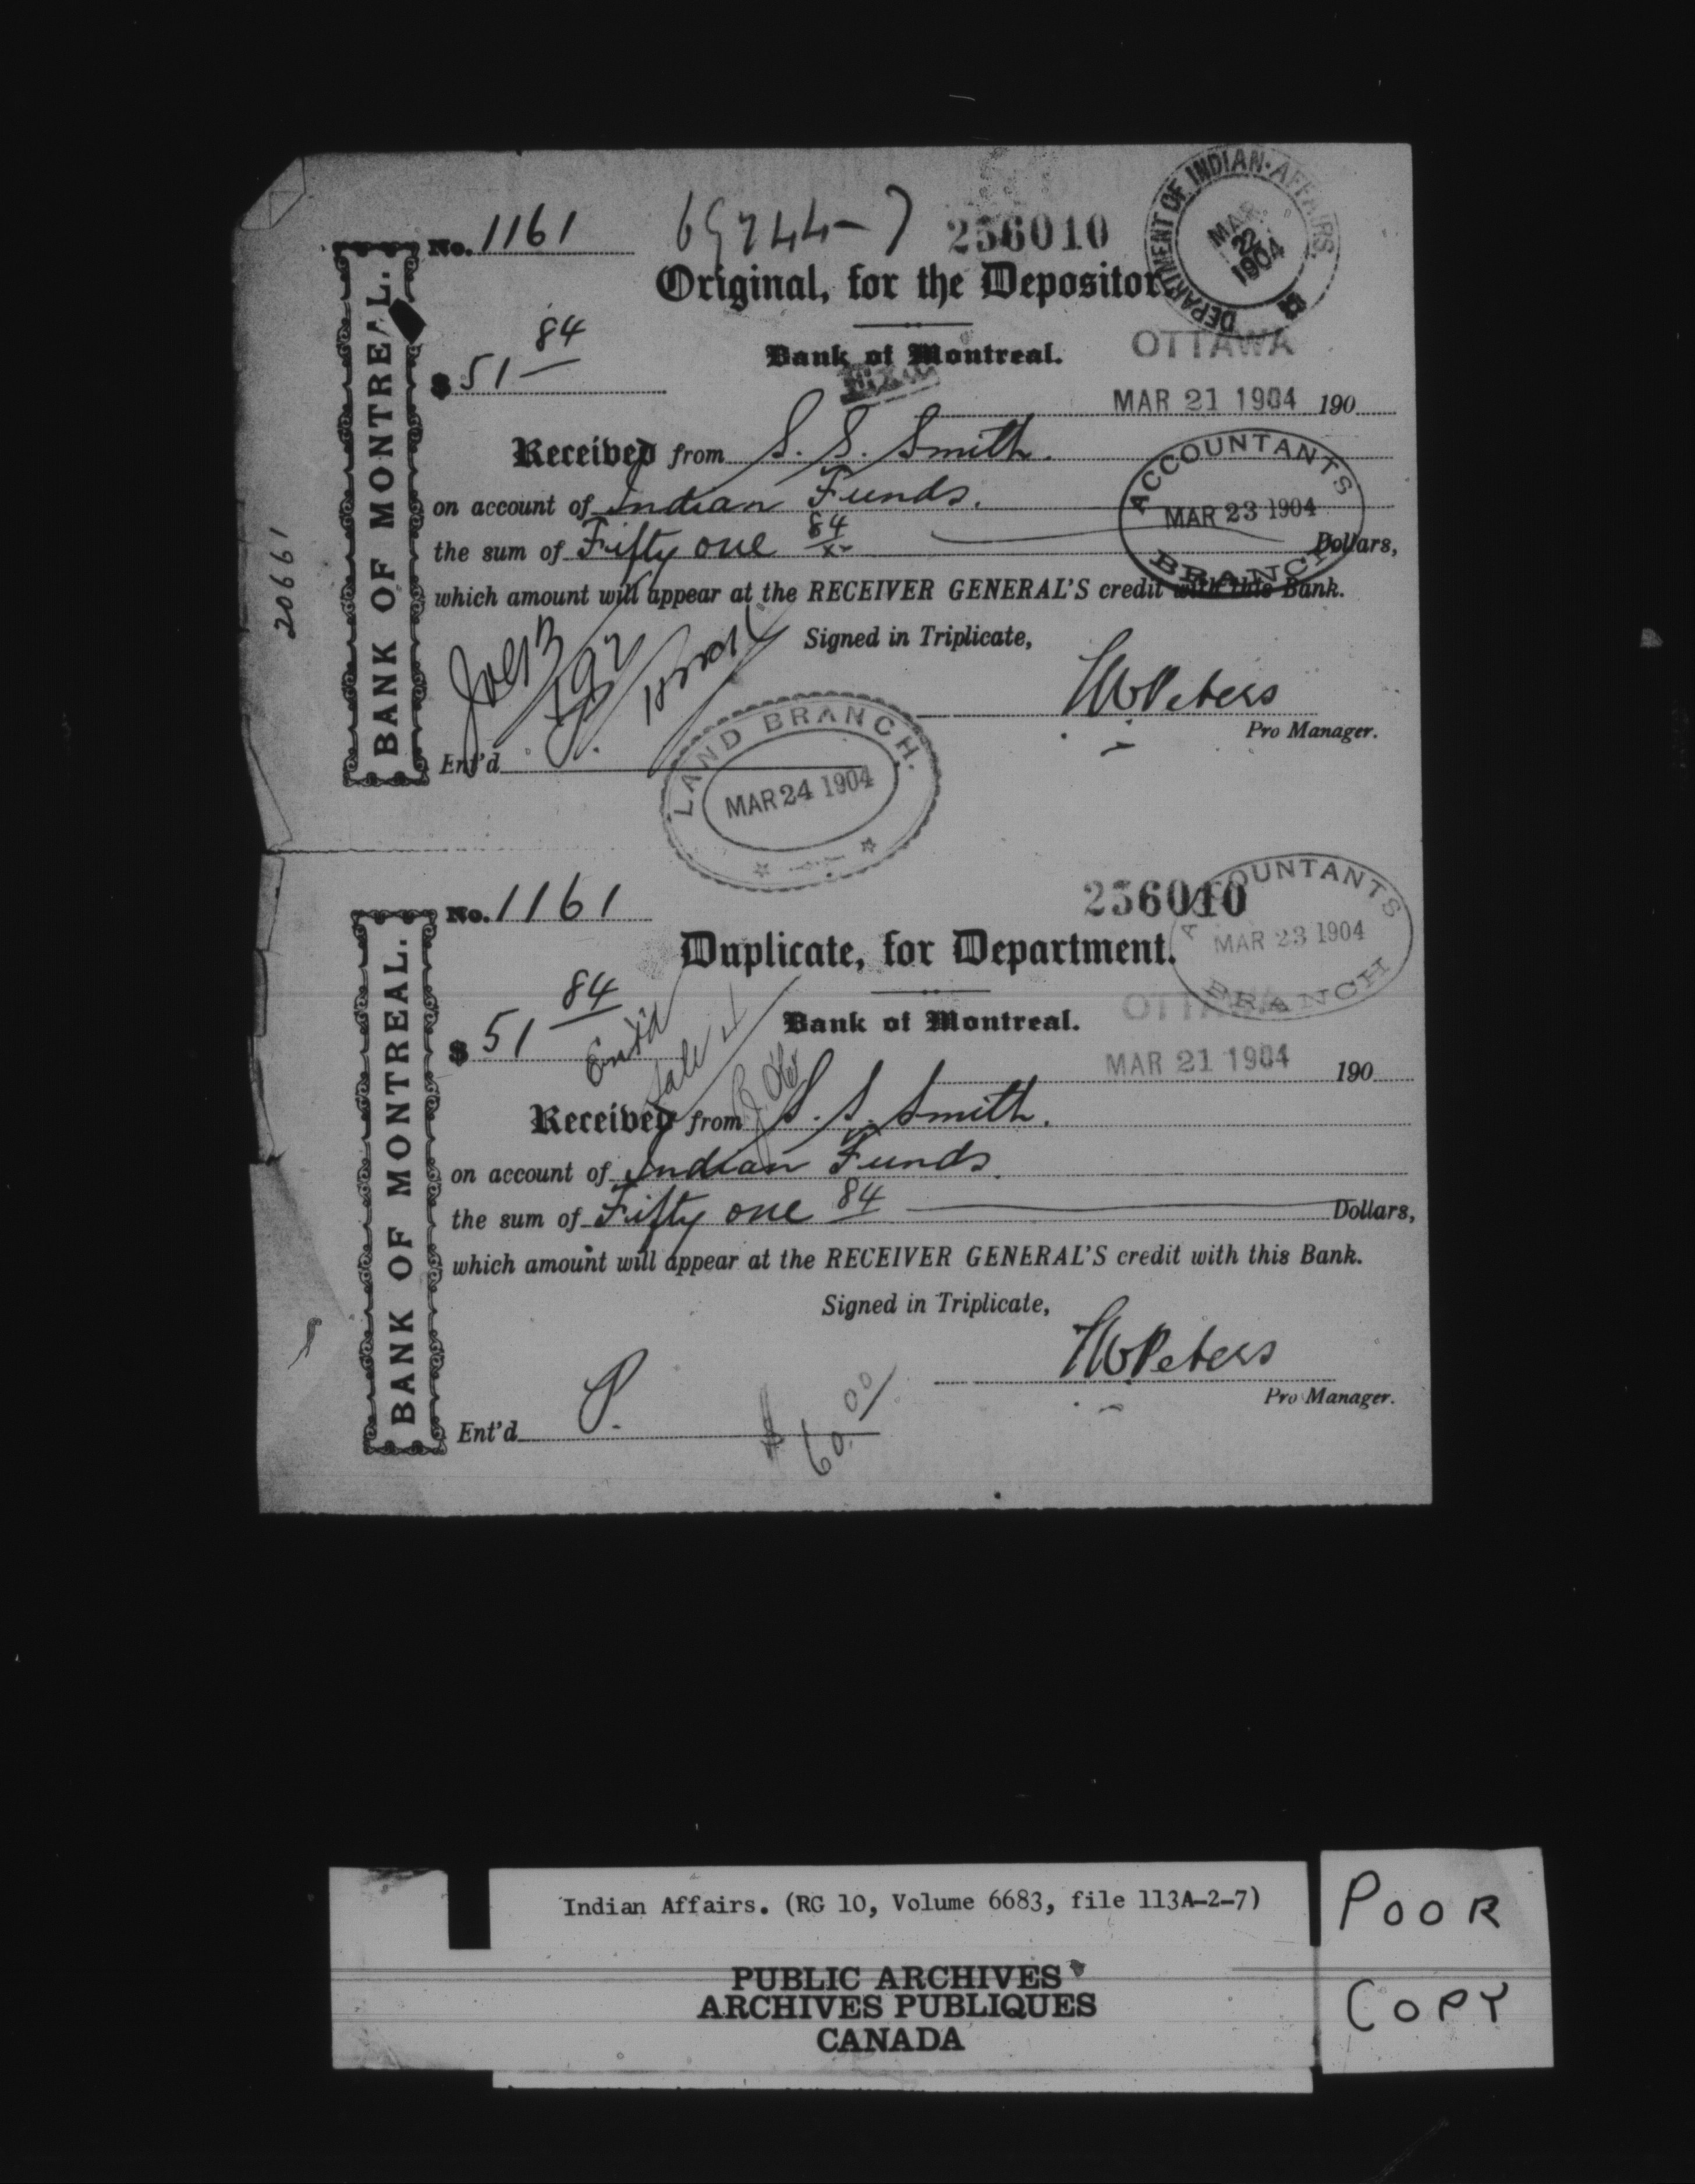 No. 1161 69744-7 256010
DEPARTMENT OF INDIAN AFFAIRS.
MAR. 22 1904
Original, for the Depositor.
$ 51 84
Bank of Montreal.
OTTAWA
MAR 21 1904 190
Received from S. S. Smith.
on account of Indian Funds.
the sum of Fifty one 84 Dollars,
ACCOUNTANTS BRANCH
MAR 23 1904
which amount will appear at the RECEIVER GENERAL'S credit with this Bank.
Signed in Triplicate,
Pro Manager.
Ent'd
LAND BRANCH.
MAR 24 1904
BANK OF MONTREAL.
20661
No. 1161 256010
ACCOUNTANTS BRANCH
MAR 23 1904
Duplicate, for Department.
$ 51 84
Ent'd
Sale
Bank of Montreal.
OTTAWA
MAR 21 1904 190
Received from S. S. Smith.
on account of Indian Funds.
the sum of Fifty one 84 Dollars,
which amount will appear at the RECEIVER GENERAL'S credit with this Bank.
Signed in Triplicate,
Pro Manager.
Ent'd P.
$ 60.00
BANK OF MONTREAL.
Indian Affairs. (RG 10, Volume 6683, file 113A-2-7)
PUBLIC ARCHIVES
ARCHIVES PUBLIQUES
CANADA
POOR
COPY